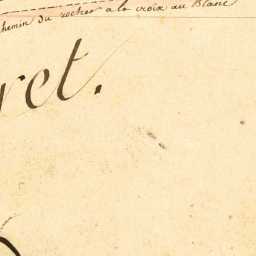 chemin du rocher a la croix au Blanc
ret.